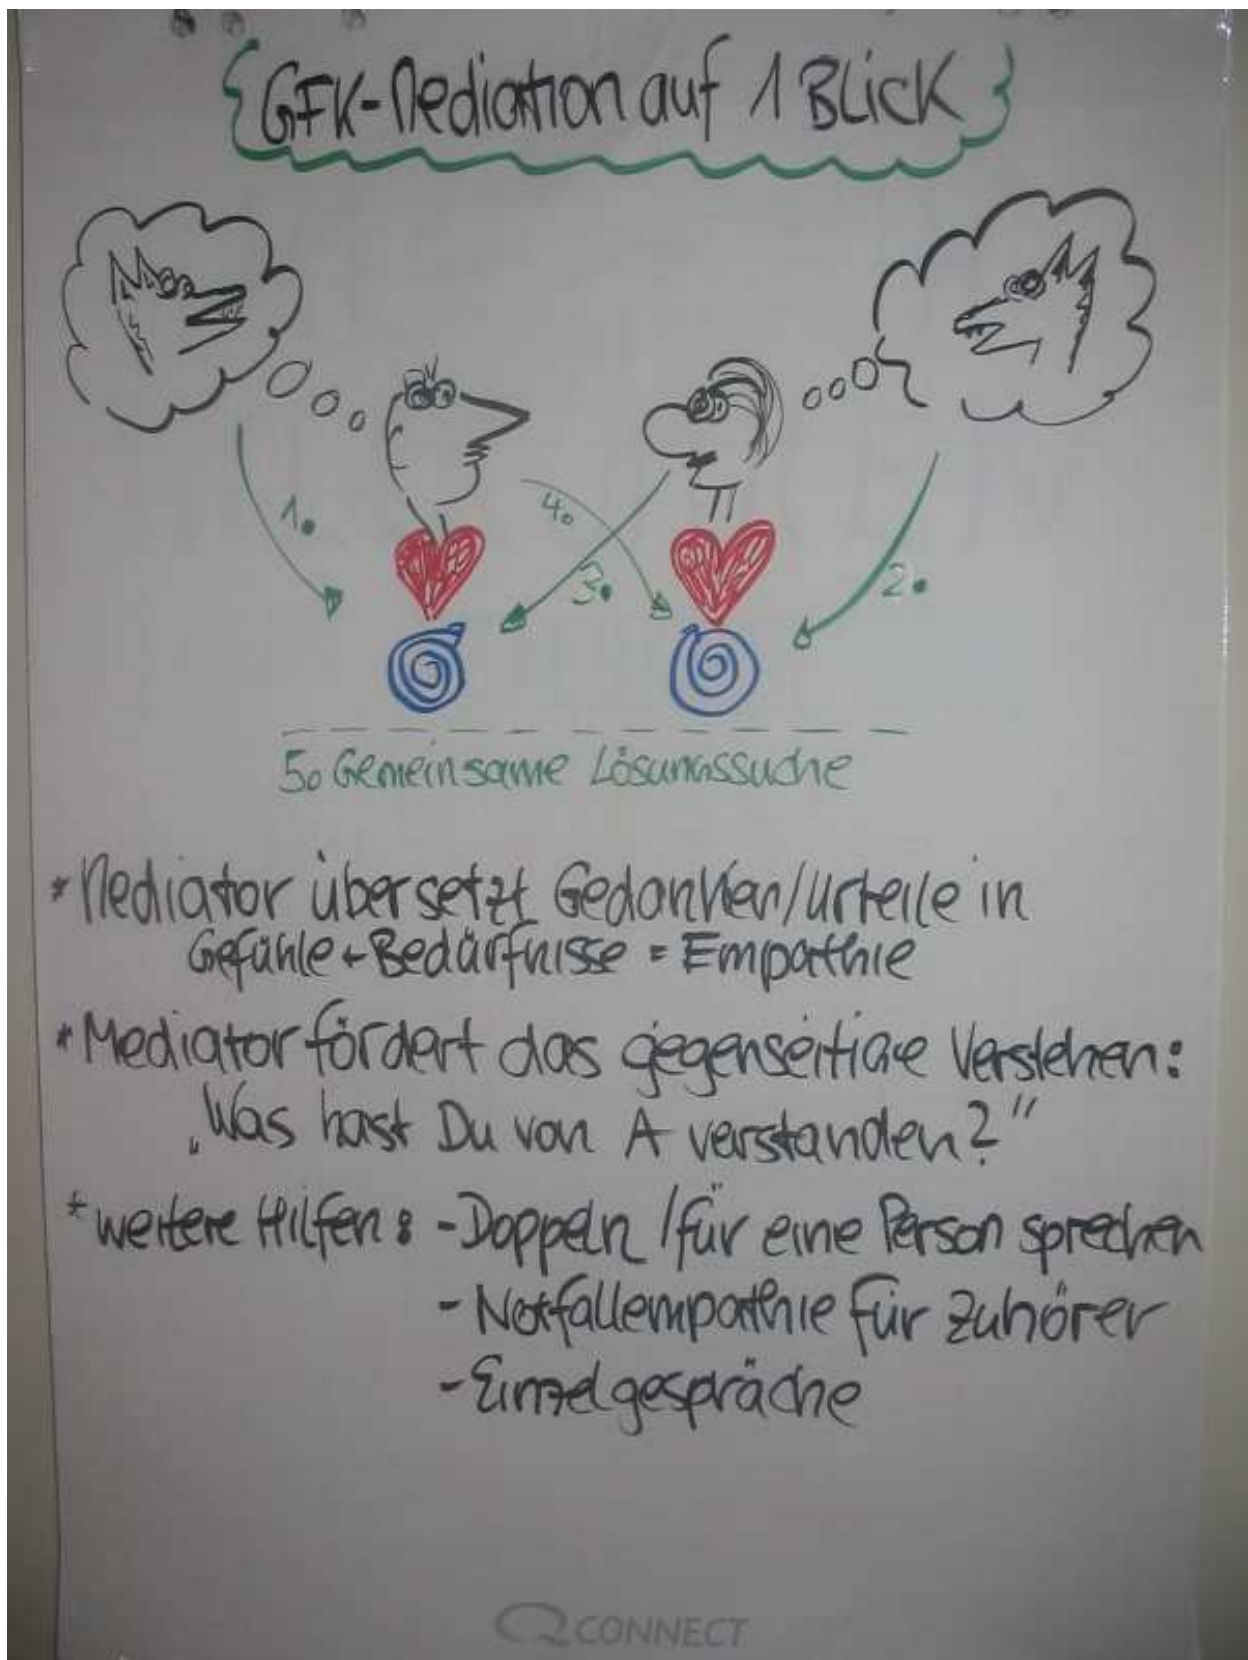 GFK-Mediation auf 1 Blick
1.
4.
3.
2.
5. Gemeinsame Lösungssuche
* Mediator übersetzt Gedanken/Urteile in
Gefühle + Bedürfnisse = Empathie
* Mediator fördert das gegenseitige Verstehen:
„Was hast Du von A verstanden?"
* weitere Hilfen: - Doppeln / für eine Person sprechen
- Notfallempathie für Zuhörer
- Einzelgespräche
Q CONNECT